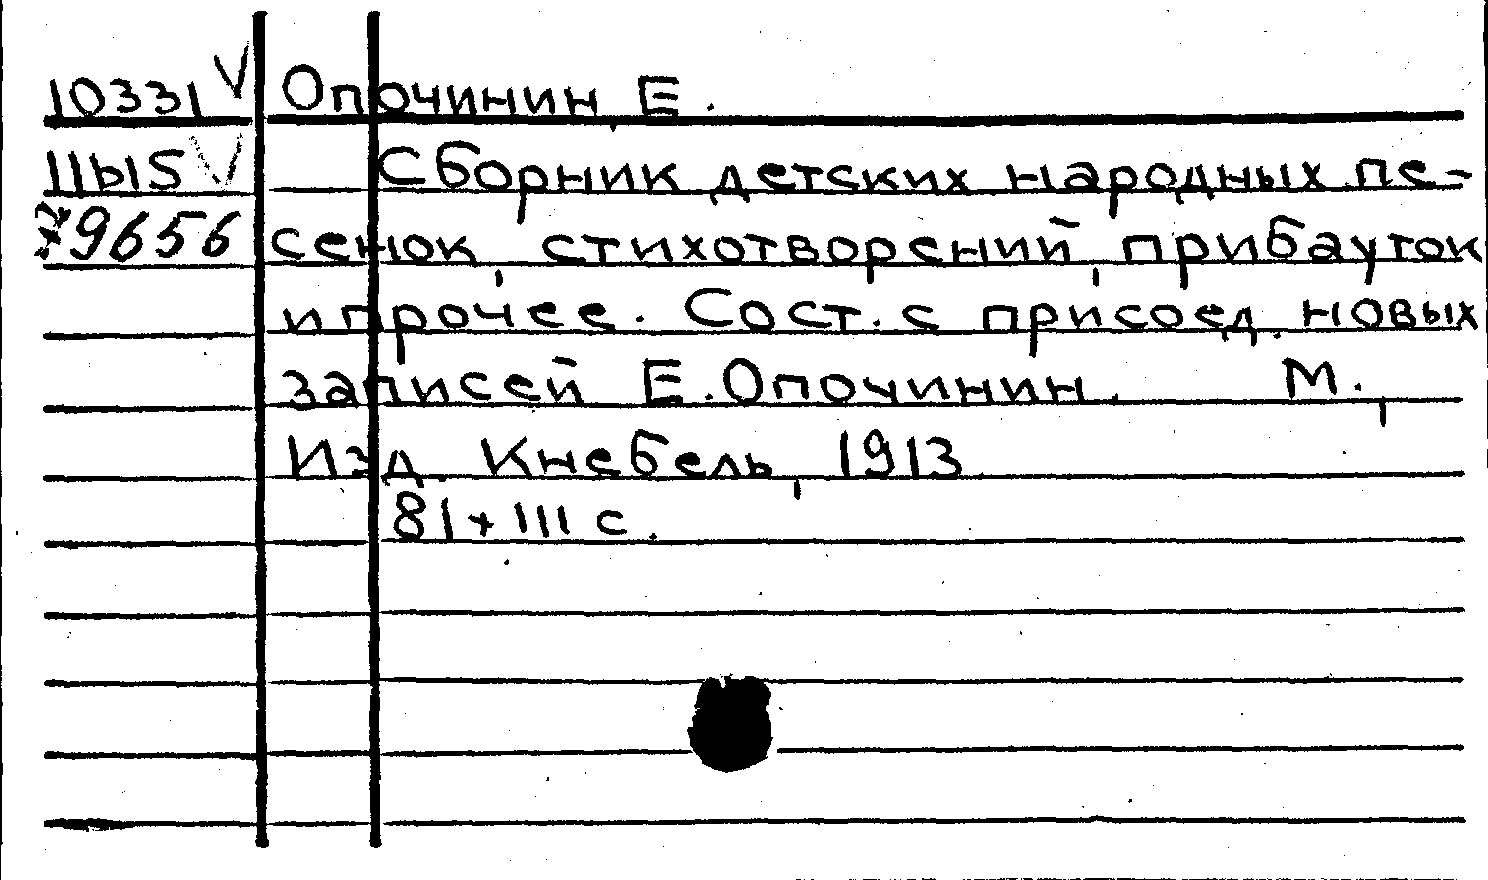 10331 V Опочинин, Е.
11615 V Сборник детских народных пе-
79656 сенок, стихотворений, прибауток
и прочее. Сост. с присоед. новых
записей Е. Опочинин. М.,
Изд. Кнебель, 1913
81+III с.